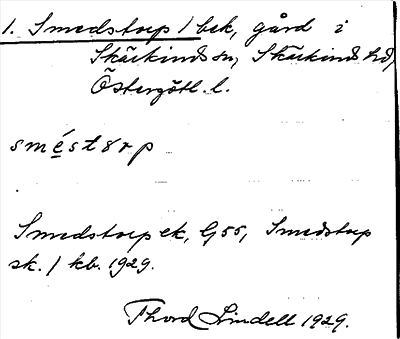 1. Smedstorp 1 bek, gård i
Skärkinds sn, Skärkinds hd,
Östergötl. l.
sméstørp
Smedstorp ek, G 55, Smedstorp
sk. / kb. 1929.
Thord Lindell 1929.